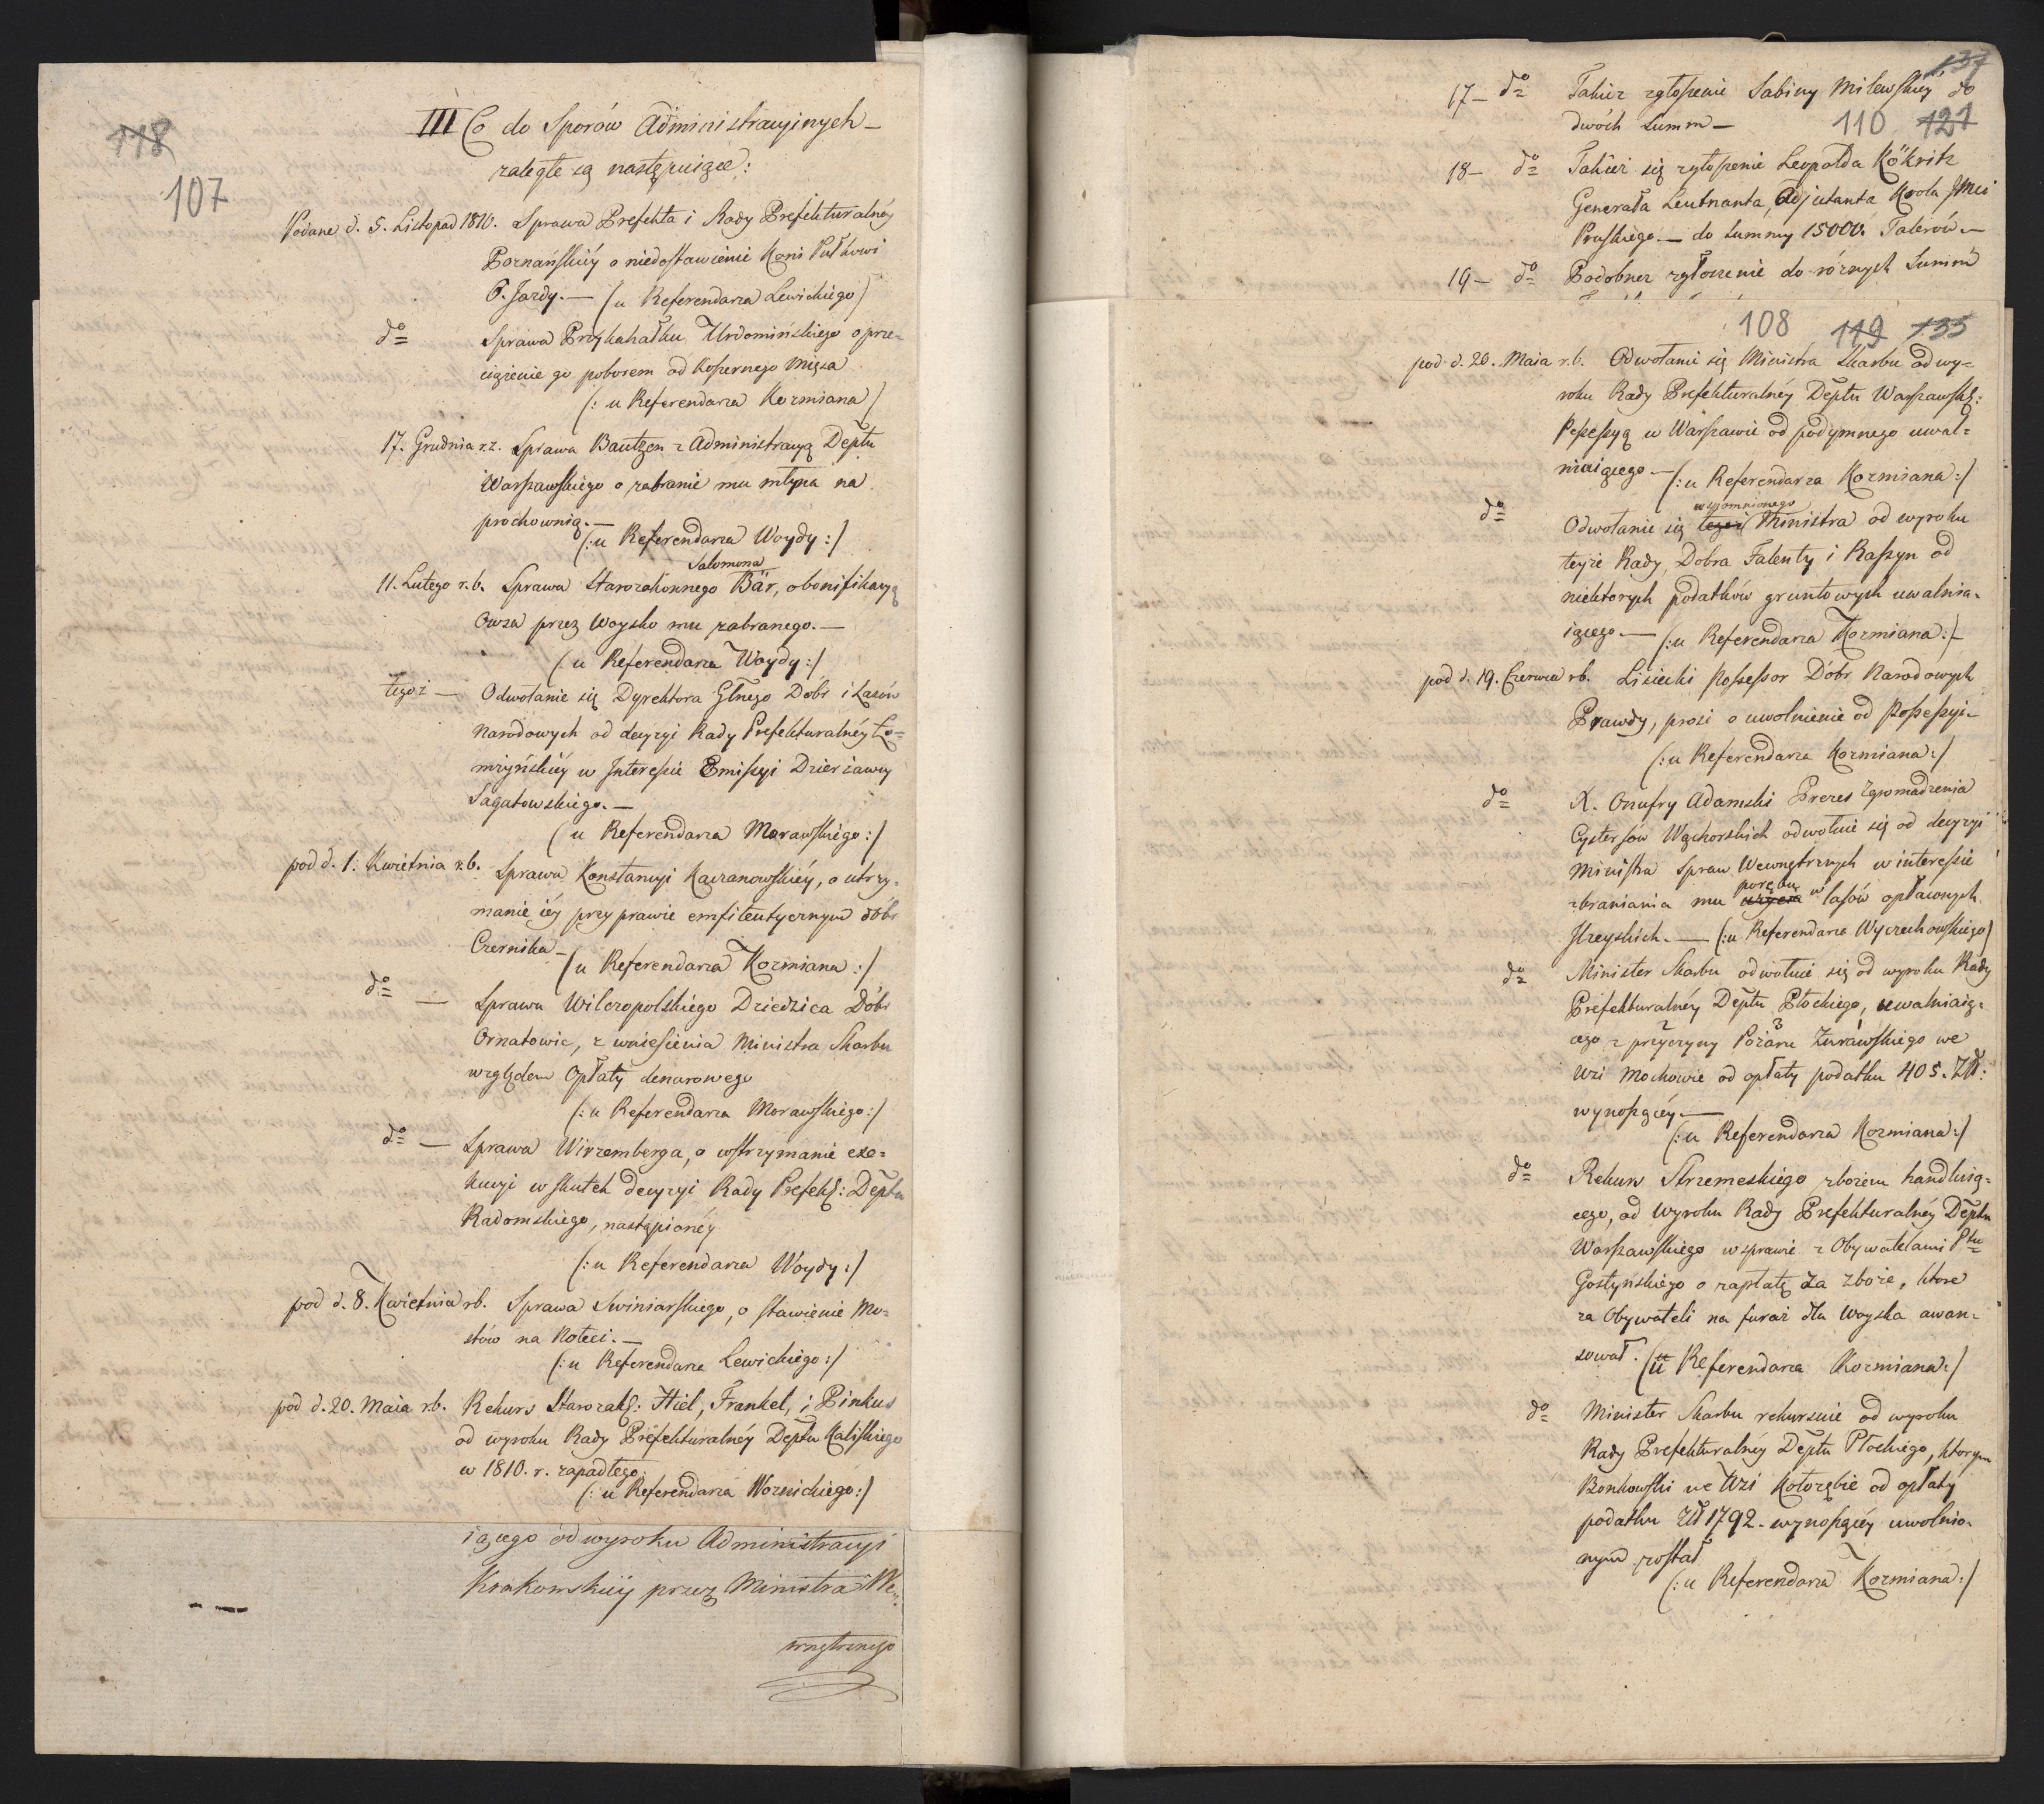 118
107
III Co do Sporów Administracyinych –
zaległe są następuiące:
Podane d. 5. Listopad 1810. Sprawa Prefekta i Rady Prefekturalnéy
Poznańskiéy o niedostawienie Koni Pułkowi
G. Jazdy. — (u Referendarza Lewickiego)
do Sprawa Przykahałku Urdomińskiego o prze=
ciążenie go poborem od Koszernego Mięsa
(: u Referendarza Kozmiana)
17. Grudnia r.z. Sprawa Bautzen z Administracyą Deptu
Warszawskiego o zabranie mu młyna na
prochownią. —
(: u Referendarza Woydy :/
Salomona
11. Lutego r.b. Sprawa Starozakonnego Bär, o bonifikacyą
Owsa przez Woysko mu zabranego. —
(: u Referendarza Woydy :/
tegoż — Odwołanie się Dyrektora Głnego Dóbr i Lasów
Narodowych od decyzyi Rady Prefekturalnéy Ło=
mżyńskiéy w Interessie Emissyi Dzierżawcy
Sagatowskiego. —
(u Referendarza Morawskiego :/
pod d. 1. Kwietnia r.b. Sprawa Konstancyi Kaczanowskiéy, o utrzy-
manie iéy przy prawie emfiteutycznym dóbr
Czernika –
(u Referendarza Kozmiana :/
do — Sprawa Wilczopolskiego Dziedzica Dóbr
Ornatowic, z wniesienia Ministra Skarbu
względem Opłaty denarowego
(: u Referendarza Morawskiego :/
do — Sprawa Wirzemberga, o wstrzymanie exe=
kucyi w skutek decyzyi Rady Prefek: Deptu
Radomskiego, nastąpionéy
(: u Referendarza Woydy :/
pod d. 8. Kwietnia rb. Sprawa Swiniarskiego, o stawienie Mo-
stów na Noteci. —
(: u Referendarza Lewickiego :/
pod d. 20. Maia r.b. Rekurs Starozak: Hiel, Frankel, i Pinkus
od wyroku Rady Prefekturalnéy Deptu Kaliskiego
w 1810. r. zapadłego.
(: u Referendarza Woznickiego :/
iącego od wyroku Administracyi
Krakowskiéy przez Ministra We:
wnętrznego
137
17 – do Takież zgłoszenie Sabiny Milewskiéy do
dwóch Summ — 110 121
18 – do Takież się zgłoszenie Leopolda Kökritz
Generała Leutnanta, Adjutanta Króla JMci
Pruskiego. — do Summy 15000. Talerów. —
19 – do Podobnez zgłoszenie do róznych Summ
108 119 135
pod d. 20. Maia r.b. Odwołanie się Ministra Skarbu od wy=
roku Rady Prefekturalnéy Deptu Warszawsk:
Possessyą w Warszawie od podymnego uwal=
niaiącego — (: u Referendarza Kozmiana :/
wspomnionego
do Odwołanie się tegoż Ministra od wyroku
teyże Rady, Dobra Falenty i Raszyn od
niektorych podatków gruntowych uwalnia-
iącego — (: u Referendarza Kozmiana :/
pod d. 19. Czerwca rb. Lisiecki Possessor Dóbr Narodowych
Prawdy, prosi o uwolnienie od Possessyi –
(: u Referendarza Kozmiana :/
do X. Onufry Adamski Prezes Zgromadzenia
Cystersów Wąchockich odwołuie się od decyzyi
Ministra Spraw Wewnętrznych w interessie
porębu
zbraniania mu w lasów opławnych
Jłzeyskich. — (: u Referendarza Wyczechowskiego)
do Minister Skarbu odwołuie się od wyroku Rady
Prefekturalnéy Deptu Płockiego, uwalniaią-
2 3
cego z przyczyny Pożaru Zurawskiego we
Wzi Mochowie od opłaty podatku 405. Zł:
wynoszącéy. —
(: u Referendarza Kozmiana :/
do Rekurs Strzemeskiego zbożem handluią=
cego, od Wyroku Rady Prefekturalnéy Deptu
Warszawskiego w sprawie z Obywatelami Ptu
Gostyńskiego o zapłatę za Zboże, ktore
za Obywateli na furaż dla Woyska awan-
sował. (u Referendarza Kozmiana :/
do Minister Skarbu rekursuie od wyroku
Rady Prefekturalnéy Deptu Płockiego, ktorym
Bonkowski we Wzi Kołozębie od opłaty
podatku Zł 1792. wynoszącéy uwolnio-
nym został
(: u Referendarza Kozmiana :/